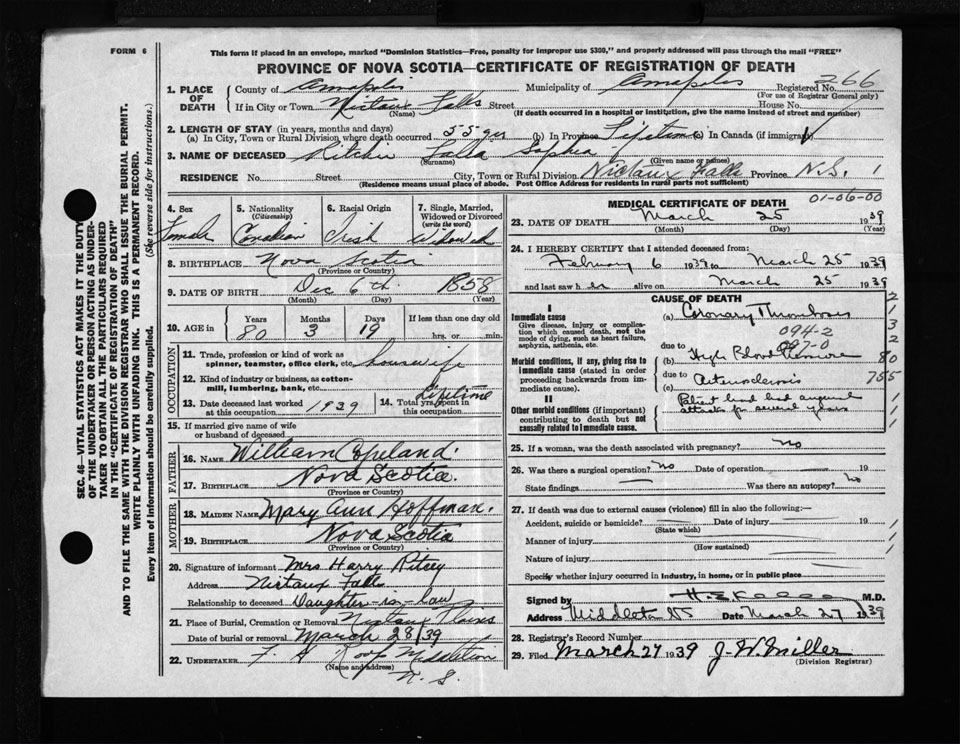 FORM 6
This form if placed in an envelope, marked "Dominion Statistics—Free, penalty for improper use $300," and properly addressed will pass through the mail "FREE"
PROVINCE OF NOVA SCOTIA—CERTIFICATE OF REGISTRATION OF DEATH
SEC. 46—VITAL STATISTICS ACT MAKES IT THE DUTY
OF THE UNDERTAKER OR PERSON ACTING AS UNDER-
TAKER TO OBTAIN ALL THE PARTICULARS REQUIRED
IN THE "CERTIFICATE OF REGISTRATION OF DEATH"
AND TO FILE THE SAME WITH THE DIVISION REGISTRAR WHO SHALL ISSUE THE BURIAL PERMIT.
WRITE PLAINLY WITH UNFADING INK. THIS IS A PERMANENT RECORD.
Every item of Information should be carefully supplied. (See reverse side for instructions.)
1. PLACE OF DEATH County of Annapolis Municipality of Annapolis Registered No. 266
(For use of Registrar General only)
If in City or Town Nictaux Falls Street House No.
(Name) (If death occurred in a hospital or institution, give the name instead of street and number)
2. LENGTH OF STAY (in years, months and days)
(a) In City, Town or Rural Division where death occurred 55 yrs (b) In Province Lifetime (c) In Canada (if immigrant)
3. NAME OF DECEASED Ritchie Lalia Sophia
(Surname) (Given name or names)
RESIDENCE No. Street City, Town or Rural Division Nictaux Falls Province N.S. 1
(Residence means usual place of abode. Post Office Address for residents in rural parts not sufficient)
4. Sex Female
5. Nationality (Citizenship) Canadian
6. Racial Origin Irish
7. Single, Married, Widowed or Divorced (write the word) Widowed
8. BIRTHPLACE Nova Scotia
(Province or Country)
9. DATE OF BIRTH Dec 6th 1858
(Month) (Day) (Year)
10. AGE in Years 80 Months 3 Days 19 If less than one day old hrs. or min.
OCCUPATION
11. Trade, profession or kind of work as spinner, teamster, office clerk, etc. housewife
12. Kind of industry or business, as cotton-mill, lumbering, bank, etc.
13. Date deceased last worked at this occupation 1939
14. Total yrs. spent in this occupation Lifetime
15. If married give name of wife or husband of deceased
FATHER
16. NAME William Copeland.
17. BIRTHPLACE Nova Scotia.
(Province or Country)
MOTHER
18. MAIDEN NAME Mary Ann Hoffman.
19. BIRTHPLACE Nova Scotia
(Province or Country)
20. Signature of informant Mrs Harry Ritcey
Address Nictaux Falls
Relationship to deceased Daughter-in-law
21. Place of Burial, Cremation or Removal Nictaux Plains
Date of burial or removal March 28/39
22. UNDERTAKER F. Roop Middleton
(Name and address)
N. S.
MEDICAL CERTIFICATE OF DEATH 01-06-00
23. DATE OF DEATH March 25 1939
(Month) (Day) (Year)
24. I HEREBY CERTIFY that I attended deceased from:
February 6 1939 to March 25 1939
and last saw her alive on March 25 1939
CAUSE OF DEATH
I
Immediate cause (a) Coronary Thrombosis
Give disease, injury or complication which caused death, not the mode of dying, such as heart failure, asphyxia, asthenia, etc.
094-2
097-0
due to
Morbid conditions, if any, giving rise to immediate cause (stated in order proceeding backwards from immediate cause).
(b) High Blood Pressure 80
due to
(c) Arteriosclerosis 755
II
Other morbid conditions (if important) contributing to death but not causally related to immediate cause.
Patient had had anginal attacks for several years
25. If a woman, was the death associated with pregnancy? no
26. Was there a surgical operation? no Date of operation 19
State findings Was there an autopsy? no
27. If death was due to external causes (violence) fill in also the following:—
Accident, suicide or homicide? Date of injury 19
(State which)
Manner of injury
(How sustained)
Nature of injury
Specify whether injury occurred in industry, in home, or in public place
Signed by M.D.
Address Middleton NS Date March 27 1939
28. Registrar's Record Number
29. Filed March 27 1939 J. W. Miller
(Division Registrar)